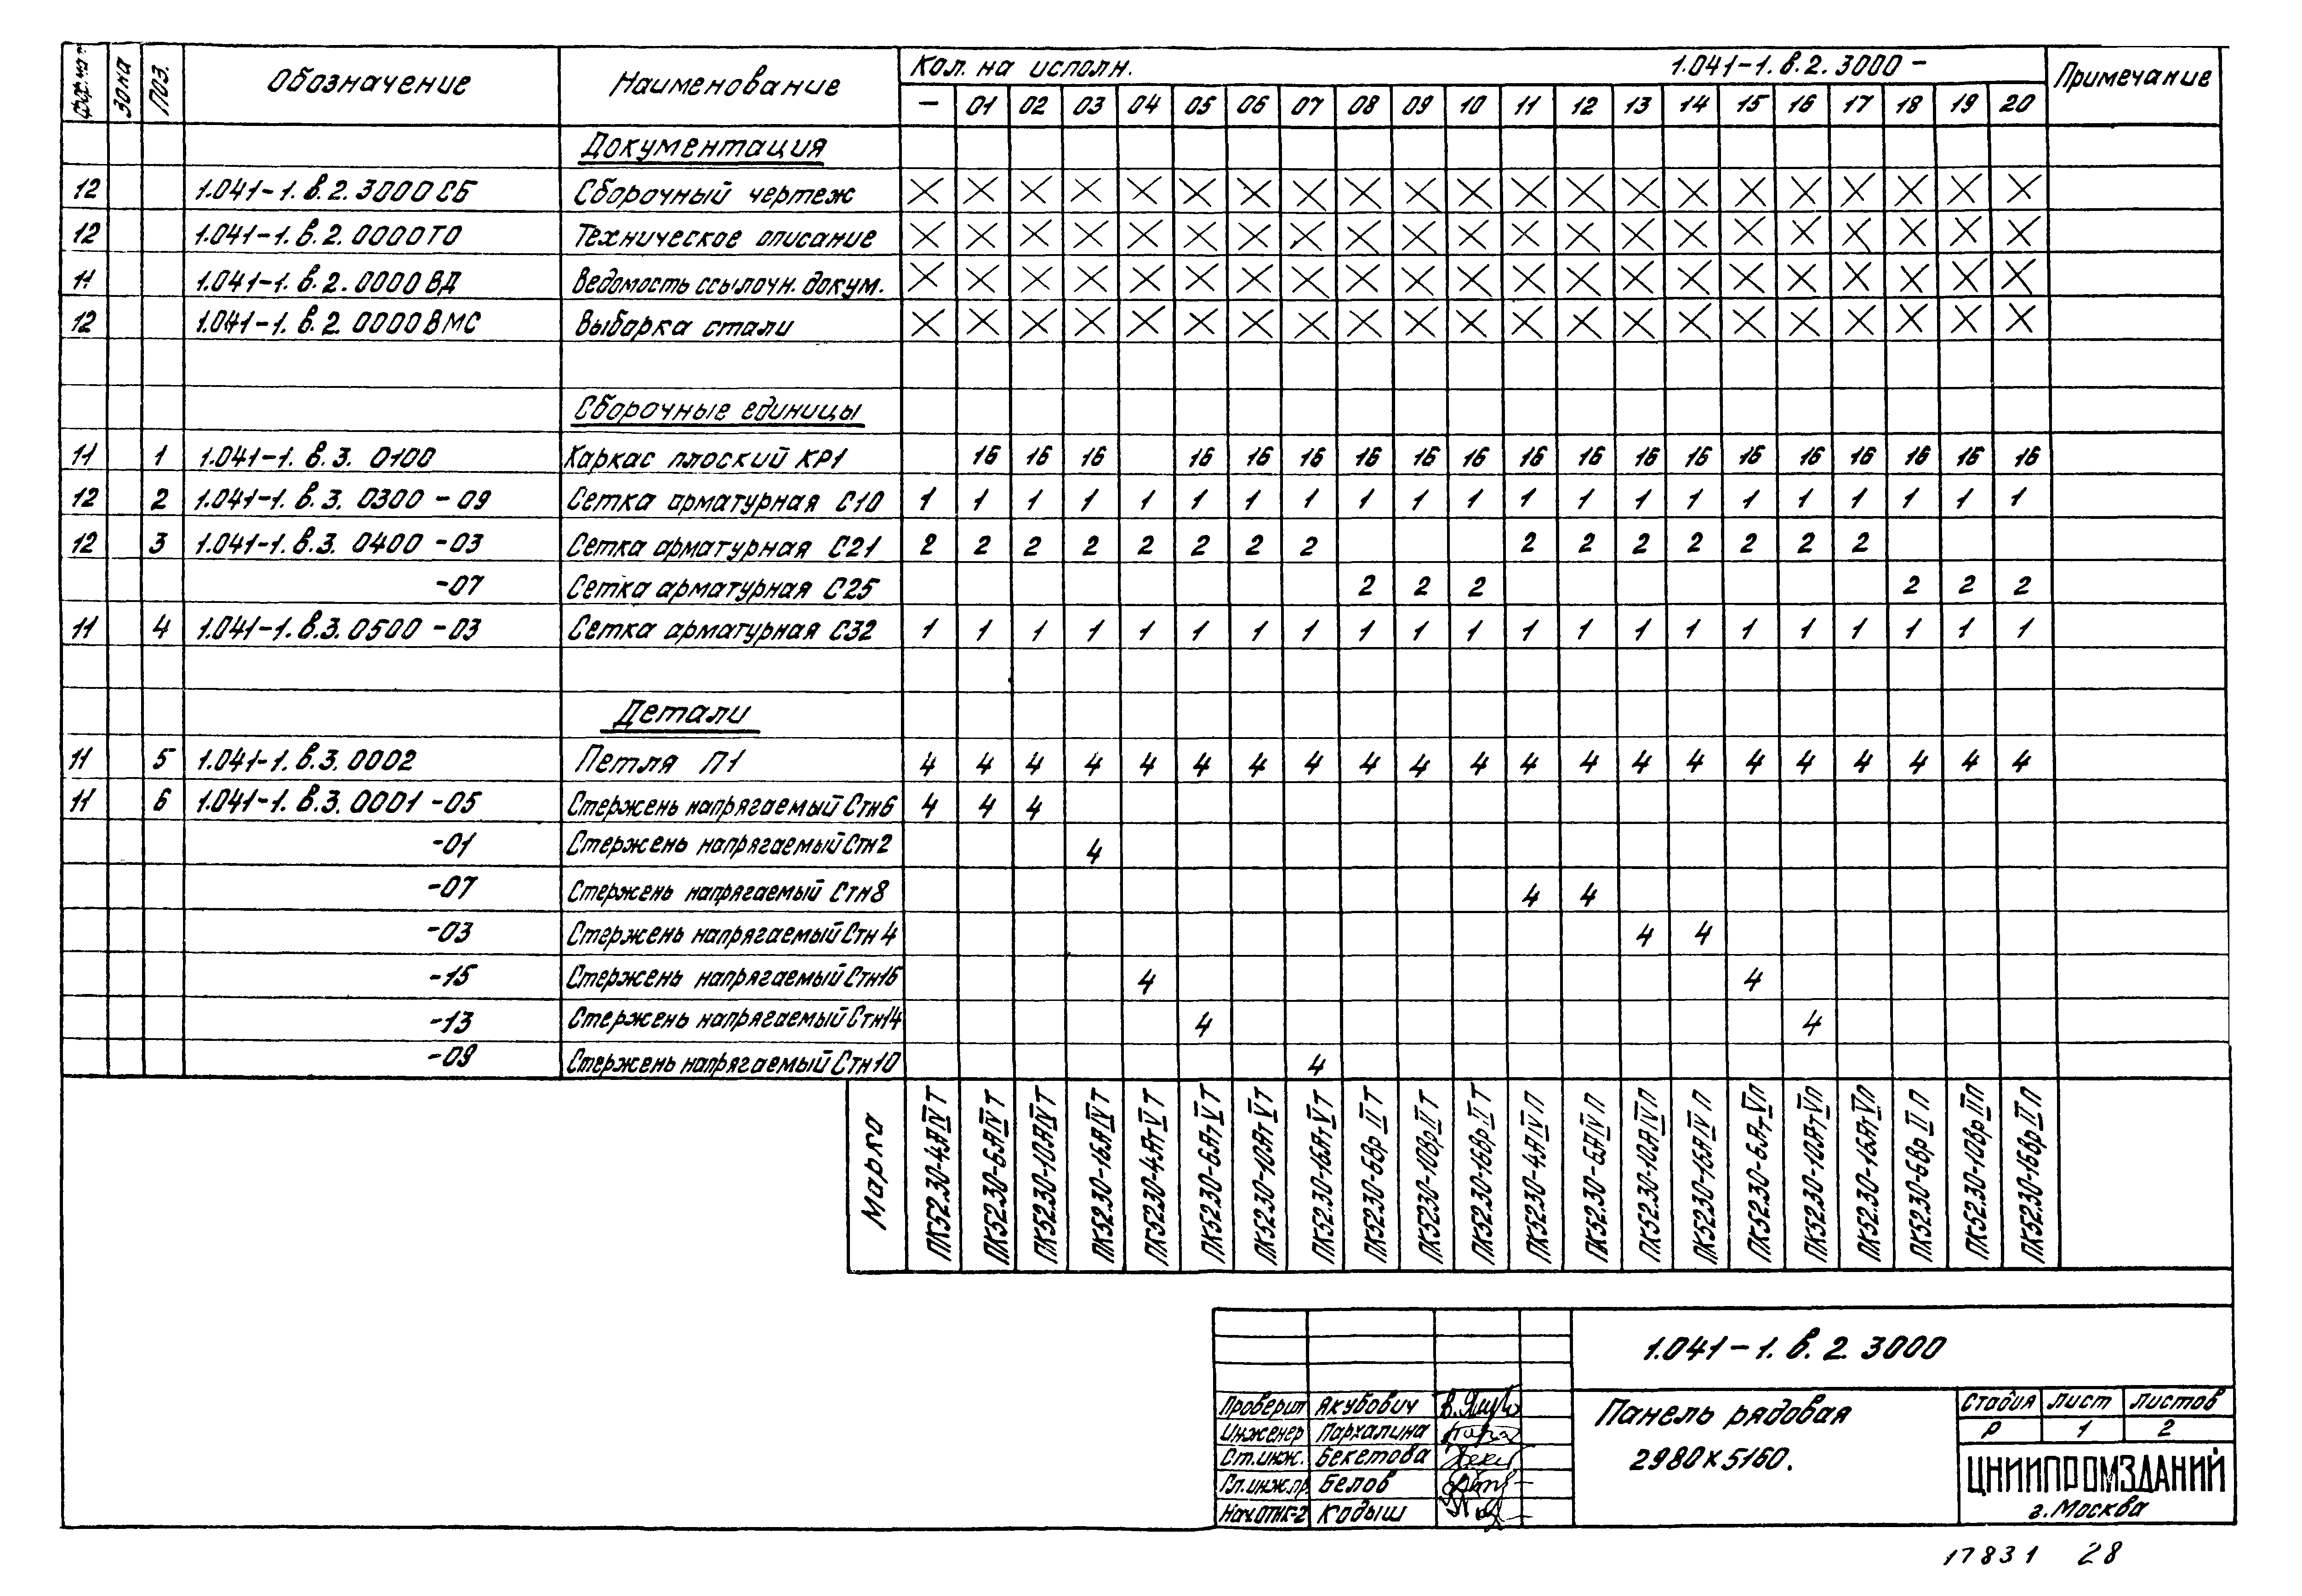 Формат Зона Поз. Обозначение Наименование Кол. на исполн. 1.041-1.в.2.3000 - Примечание
— 01 02 03 04 05 06 07 08 09 10 11 12 13 14 15 16 17 18 19 20
Документация
12 1.041-1.в.2.3000СБ Сборочный чертеж X X X X X X X X X X X X X X X X X X X X X
12 1.041-1.в.2.0000ТО Техническое описание X X X X X X X X X X X X X X X X X X X X X
11 1.041-1.в.2.0000ВД Ведомость ссылочн. докум. X X X X X X X X X X X X X X X X X X X X X
12 1.041-1.в.2.0000ВМС Выборка стали X X X X X X X X X X X X X X X X X X X X X
Сборочные единицы
11 1 1.041-1.в.3.0100 Каркас плоский КР1 16 16 16 16 16 16 16 16 16 16 16 16 16 16 16 16 16 16 16
12 2 1.041-1.в.3.0300-09 Сетка арматурная С10 1 1 1 1 1 1 1 1 1 1 1 1 1 1 1 1 1 1 1 1 1
12 3 1.041-1.в.3.0400-03 Сетка арматурная С21 2 2 2 2 2 2 2 2 2 2 2 2 2 2 2
-07 Сетка арматурная С25 2 2 2 2 2 2
11 4 1.041-1.в.3.0500-03 Сетка арматурная С32 1 1 1 1 1 1 1 1 1 1 1 1 1 1 1 1 1 1 1 1 1
Детали
11 5 1.041-1.в.3.0002 Петля П1 4 4 4 4 4 4 4 4 4 4 4 4 4 4 4 4 4 4 4 4 4
11 6 1.041-1.в.3.0001-05 Стержень напрягаемый Стн6 4 4 4
-01 Стержень напрягаемый Стн2 4
-07 Стержень напрягаемый Стн8 4 4
-03 Стержень напрягаемый Стн4 4 4
-15 Стержень напрягаемый Стн16 4 4
-13 Стержень напрягаемый Стн14 4 4
-09 Стержень напрягаемый Стн10 4
Марка
ПК52.30-4АIVТ
ПК52.30-6АIVТ
ПК52.30-10АIVТ
ПК52.30-16АIVТ
ПК52.30-4АтVТ
ПК52.30-6АтVТ
ПК52.30-10АтVТ
ПК52.30-16АтVТ
ПК52.30-6ВрIIТ
ПК52.30-10ВрIIТ
ПК52.30-16ВрIIТ
ПК52.30-4АIVП
ПК52.30-6АIVП
ПК52.30-10АIVП
ПК52.30-16АIVП
ПК52.30-6АтVП
ПК52.30-10АтVП
ПК52.30-16АтVП
ПК52.30-6ВрIIП
ПК52.30-10ВрIIП
ПК52.30-16ВрIIП
1.041-1.в.2.3000
Проверил Якубович
Инженер Пархалина
Ст.инж. Бекетова
Гл.инж.пр. Белов
Нач.ОТК-2 Кодыш
Панель рядовая
2980×5160.
Стадия Лист Листов
Р 1 2
ЦНИИПРОМЗДАНИЙ
г. Москва
17831 28